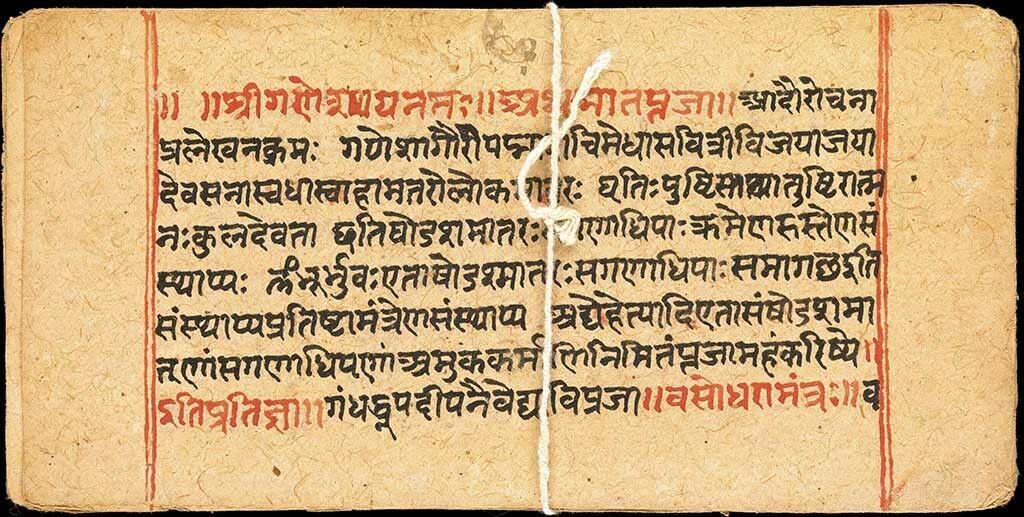 ॥ ॥श्रीगणेशायनमः॥ पूजा॥ आदौरोचना
प्रलेखनक्रमः गणेशागौरीपद्मा चिमेधासवित्रीविजयाजया
देवसेनास्वधास्वाहामातरोलोक धृतिःपुष्टि तुष्टिरात्म
नःकुलदेवता धृतिषोडशमातरः गणाधिपाःक्रमेणहस्तेणसं
स्थाप्यः भूर्भुवःएताषोडशमातरःसगणाधिपाःसमागछइति
संस्थाप्यप्रतिष्ठामंत्रेणसंस्थाप्य अद्येहेत्यादिएतासंषोडशमा
तॄणांसगणाधिपणां अमुककर्माणिनिमितंपूजामहंकरिष्ये॥
इतिप्रतिज्ञा॥गंधधूपदीपनैवेद्य पूजा॥वसोधरामंत्रः॥व